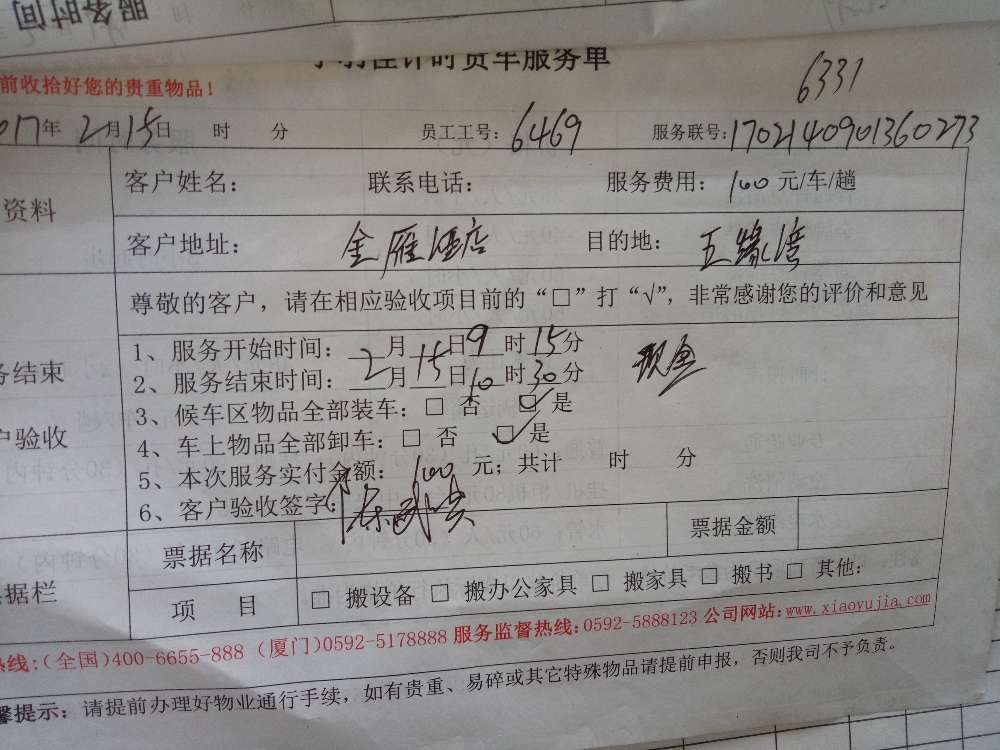 服务时间
小羽佳计时货车服务单
前收拾好您的贵重物品！
6331
2017年 2月15日 时 分 员工工号：6469 服务联号：1702140901360273
资料
客户姓名： 联系电话： 服务费用：100元/车/趟
客户地址：金雁酒店 目的地：五缘湾
尊敬的客户，请在相应验收项目前的“□”打“√”，非常感谢您的评价和意见
务结束
户验收
1、服务开始时间：2月15日9时15分
2、服务结束时间：2月15日10时30分
现金
3、候车区物品全部装车：□ 否 ☑ 是
4、车上物品全部卸车：□ 否 ☑ 是
5、本次服务实付金额：100元；共计 时 分
6、客户验收签字：
票据栏
票据名称 票据金额
项 目 □ 搬设备 □ 搬办公家具 □ 搬家具 □ 搬书 □ 其他：
热线：（全国）400-6655-888（厦门）0592-5178888 服务监督热线：0592-5888123 公司网站：www.xiaoyujia.com
馨提示：请提前办理好物业通行手续，如有贵重、易碎或其它特殊物品请提前申报，否则我司不予负责。